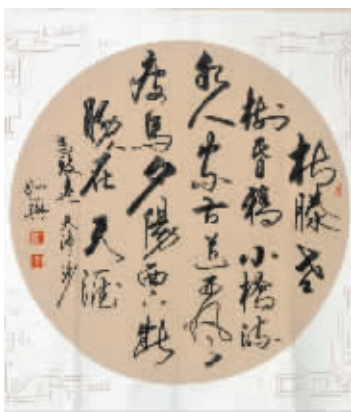 枯藤老
樹昏鴉小橋流
水人家古道西風
瘦馬夕陽西下斷
腸人在天涯
馬致遠天净沙